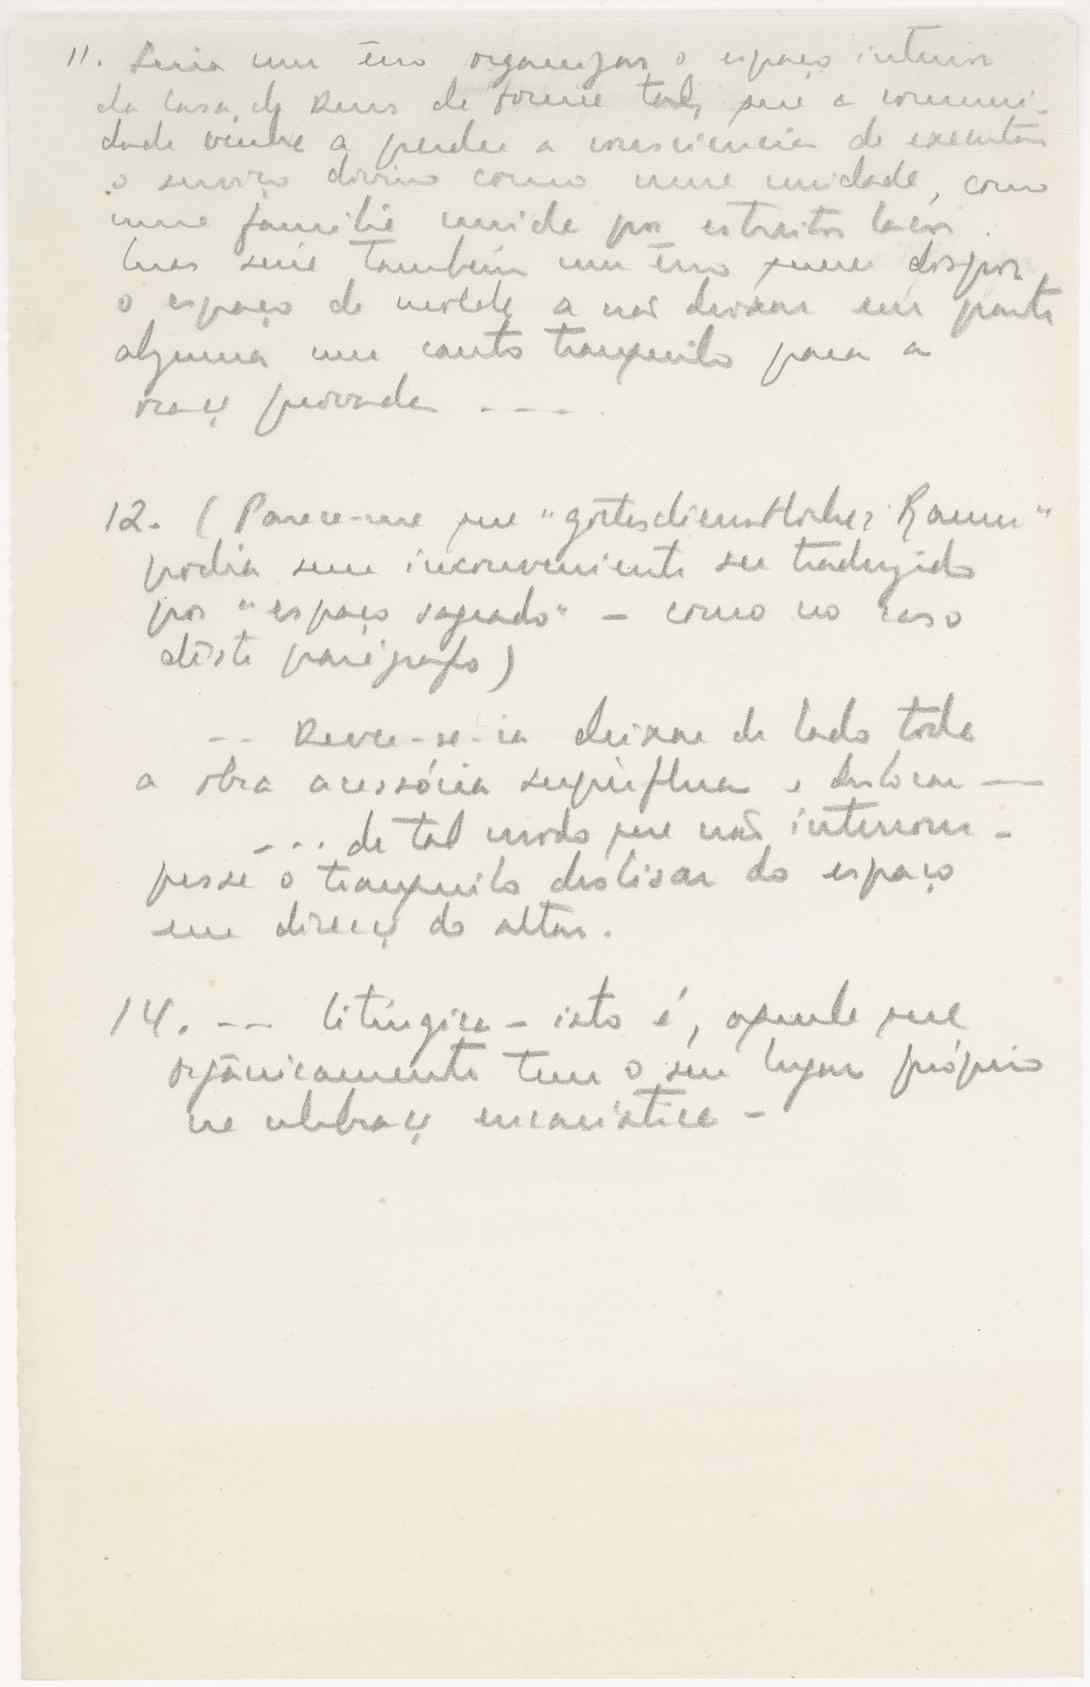 11. Seria um êrro organizar o espaço interior
da Casa de Deus de forma tal, que a comuni-
dade venha a perder a consciencia de executar
o serviço divino como uma unidade, como
uma familia unida por estreitos laços.
Mas seria também um êrro dispor
o espaço de molde a não deixar em parte
alguma um canto tranquilo para a
oraç privada ----.
12. (Parece-me que "gottesdienstlicher Raum"
podia sem inconveniente ser traduzido
por "espaço sagrado" - como no caso
dêste parágrafo)
-- Dever-se-ia deixar de lado toda
a obra acessória supérflua e deslocar --
... de tal modo que não interrom-
pesse o tranquilo deslisar do espaço
em direcç do altar.
14. -- litúrgica - isto é, aquele que
orgânicamente tem o seu lugar próprio
na celebraç eucaristica -